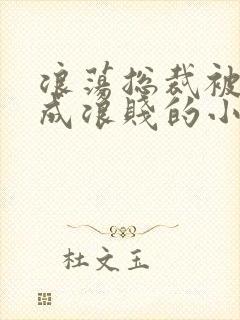 浪蕩总裁被
成浪賤的小
杜文玉